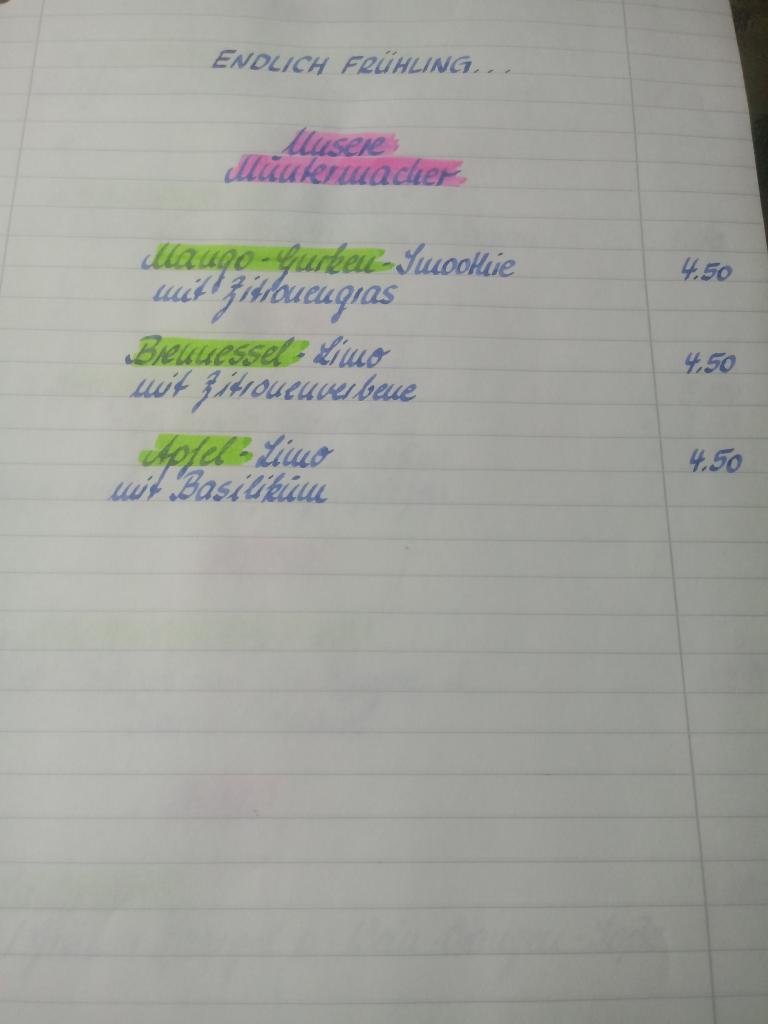 ENDLICH FRÜHLING...
Unsere
Muntermacher
Mango-Gurken-Smoothie
mit Zitronengras
4.50
Brennessel-Limo
mit Zitronenverbene
4.50
Apfel-Limo
mit Basilikum
4.50